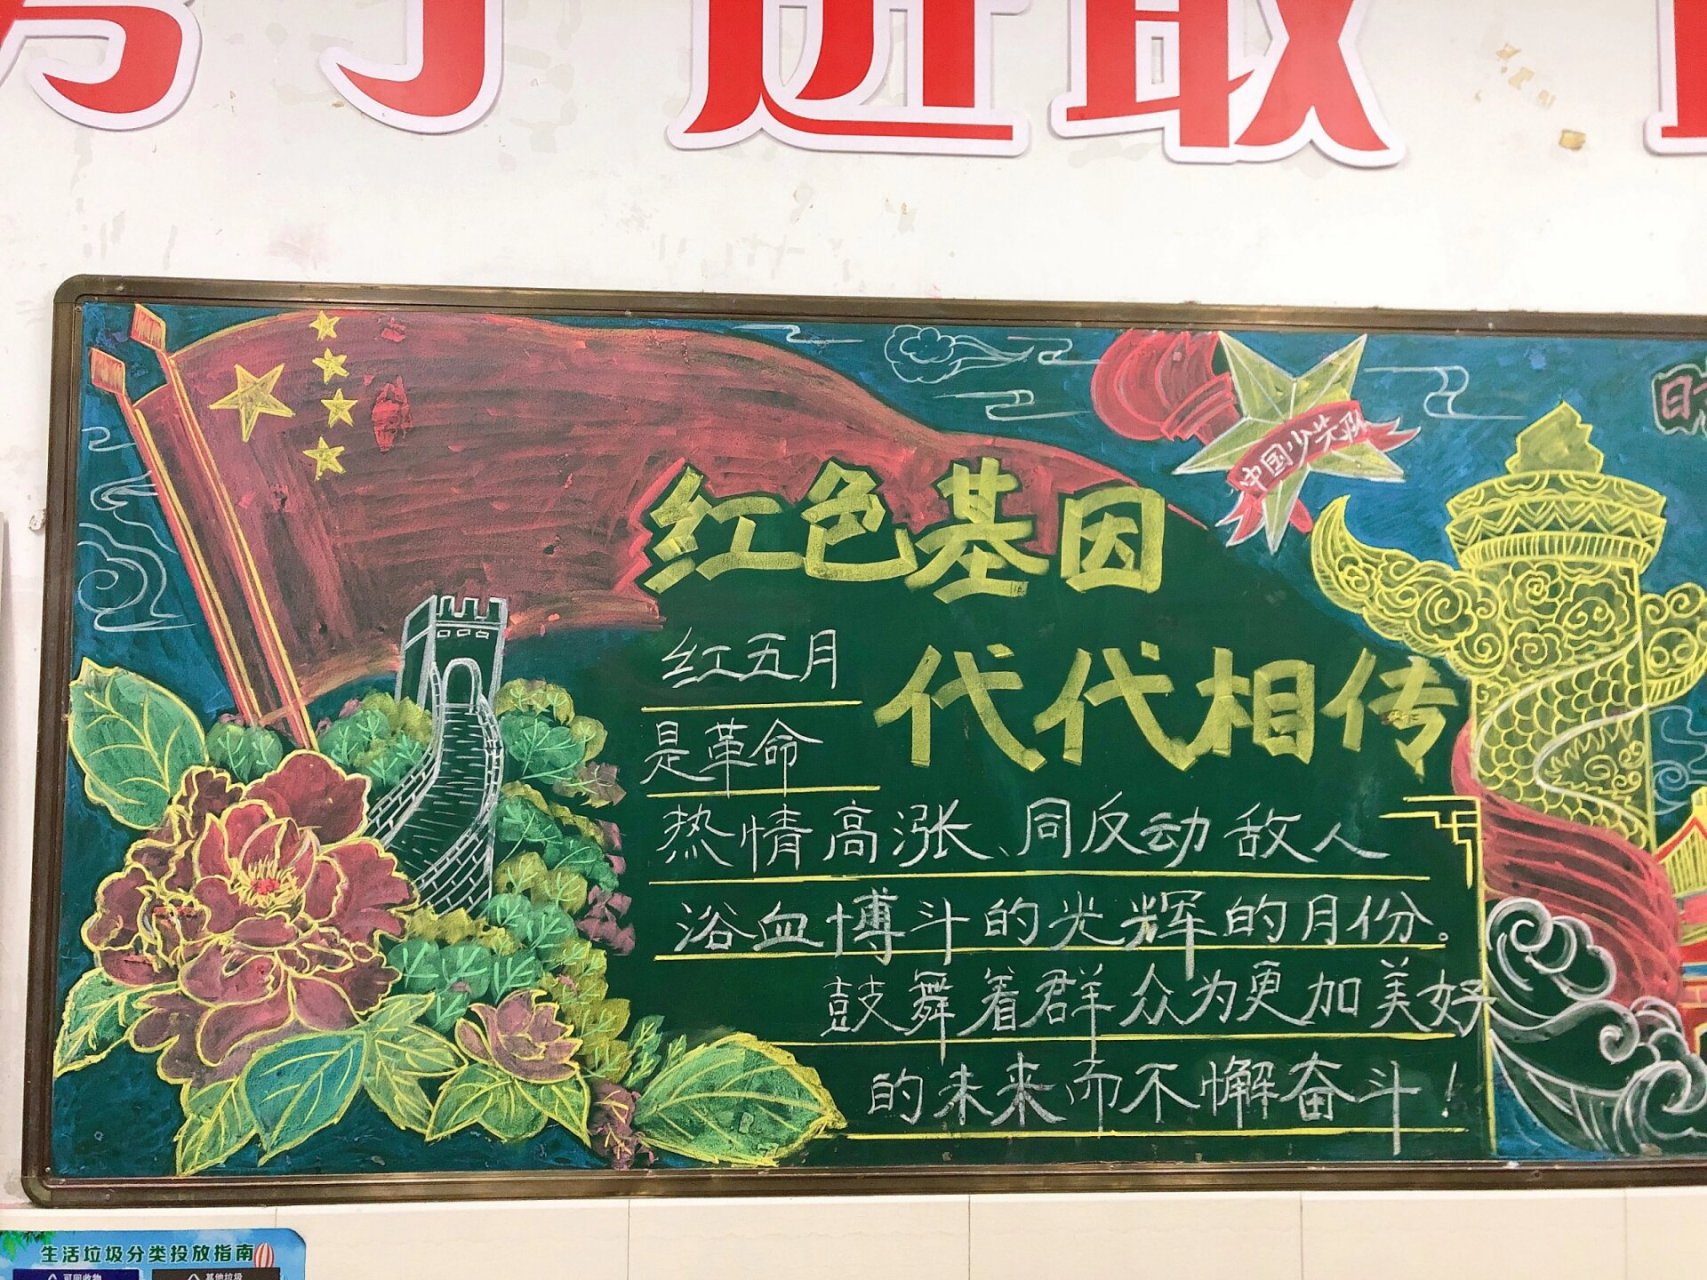 进取
中国少先队
红色基因
代代相传
红五月
是革命
热情高涨、同反动敌人
浴血博斗的光辉的月份。
鼓舞着群众为更加美好
的未来而不懈奋斗！
生活垃圾分类投放指南
可回收物
其他垃圾